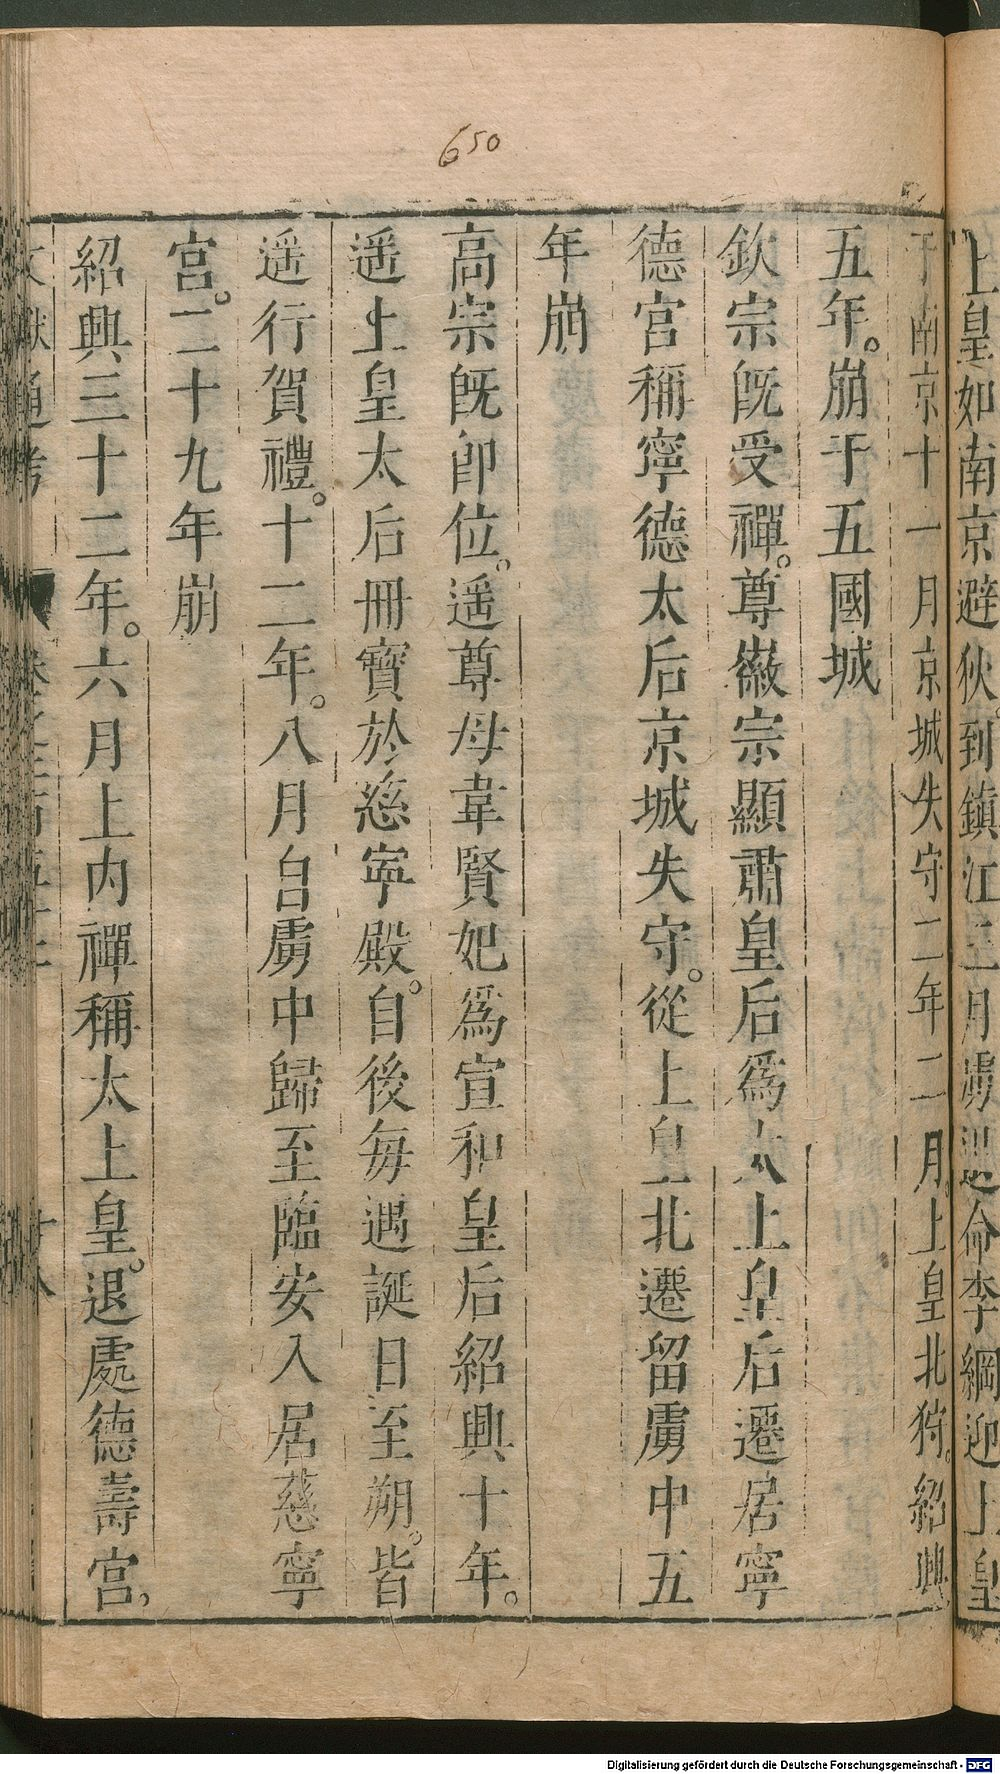 650
上皇如南京避狄到鎮江三月虜退命李綱迎上皇
于南京十一月京城失守二年二月上皇北狩。紹興
五年。崩于五國城
欽宗旣受禪。尊徽宗顯肅皇后爲太上皇后遷居寧
德宮稱寧德太后京城失守。從上皇北遷留虜中五
年崩
高宗旣卽位。遥尊母韋賢妃爲宣和皇后紹興十年。
遥上皇太后冊寶於慈寧殿。自後每遇誕日至朔。皆
遥行賀禮。十二年。八月自虜中歸至臨安入居慈寧
宮。二十九年崩
紹興三十二年。六月上內禪稱太上皇。退處德壽宮。
文獻通考
Digitalisierung gefördert durch die Deutsche Forschungsgemeinschaft - DFG